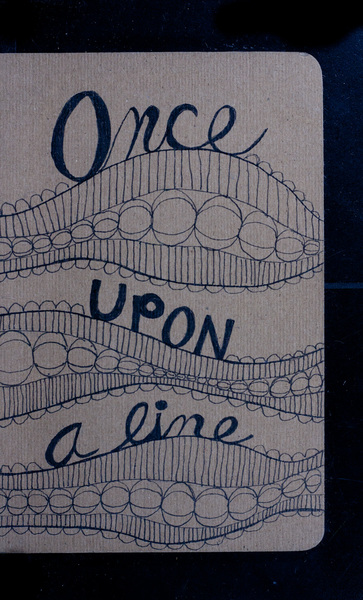 Once
UPON
a line